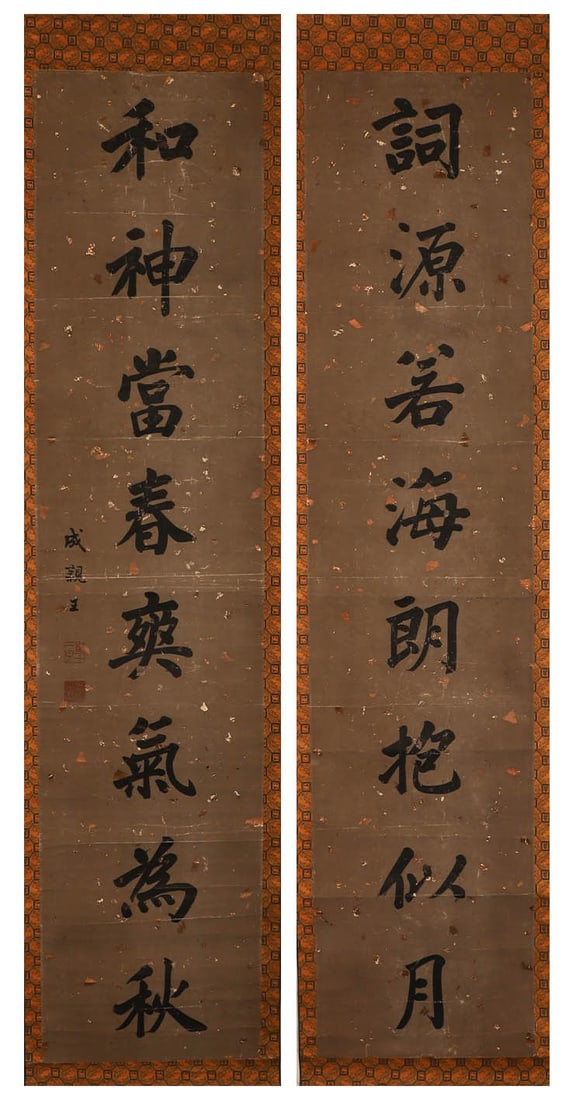 詞源若海朗抱似月
和神當春爽氣為秋
成親王